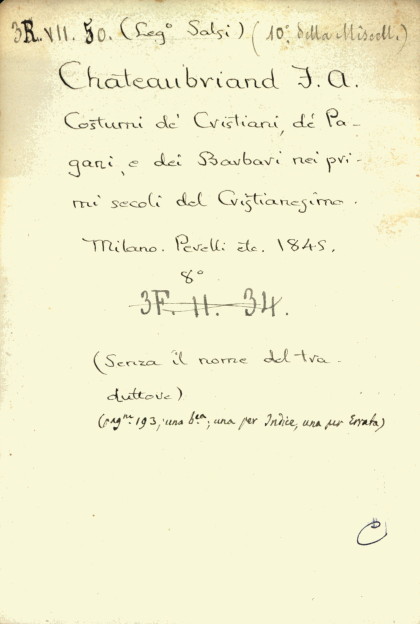 3R. VII. 50. (Leg° Salsi) (10° della Miscell.)
Chateaubriand F. A.
Costumi de' Cristiani, de' Pa-
gani, e dei Barbari nei pri-
mi secoli del Cristianesimo.
Milano. Perelli etc. 1845.
8°
3F. 11. 34.
(Senza il nome del tra-
duttore)
(pagne 193, una bca, una per Indice, una per Errata)